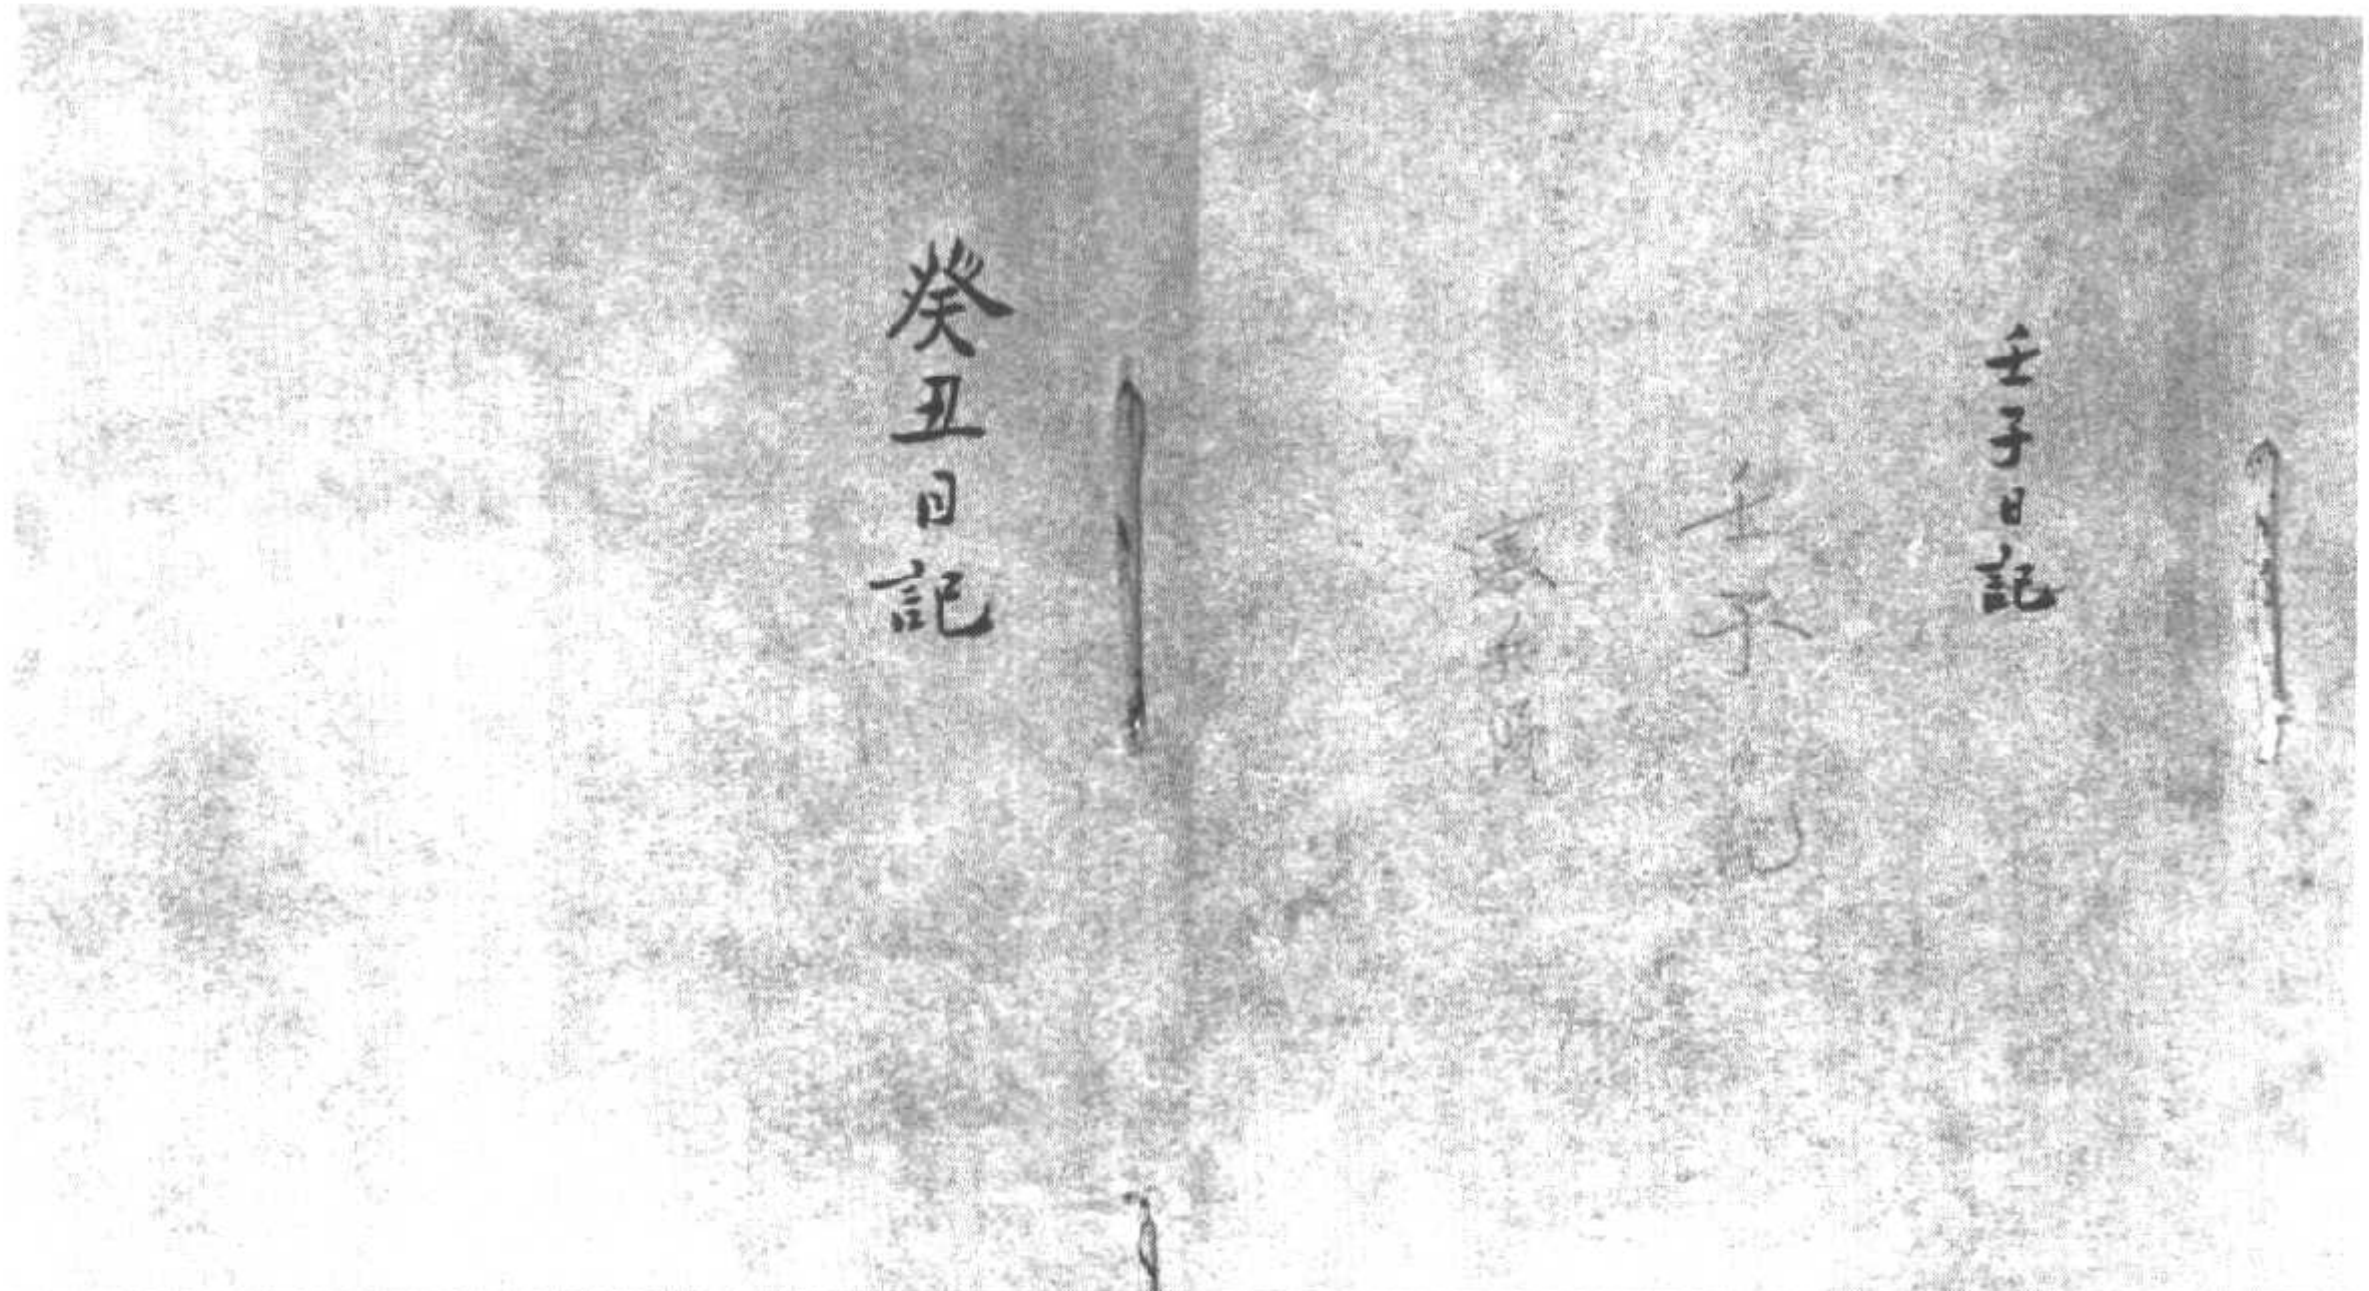 壬子日記
壬子
癸丑日記